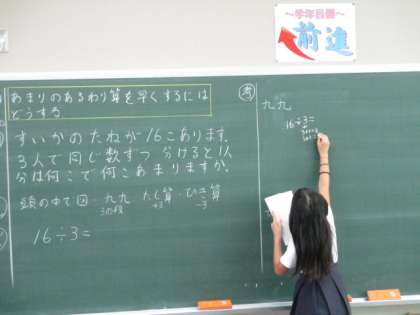 ～学年目標～
前進
あまりのあるわり算を早くするには
どうする
すいかのたねが16こあります。
3人で同じ数ずつ分けると1人
分は何こで何こあまりますか。
頭の中で図・九九 たし算・ひき算
3の段 +3 -3
16÷3=
考
九九
16÷3=